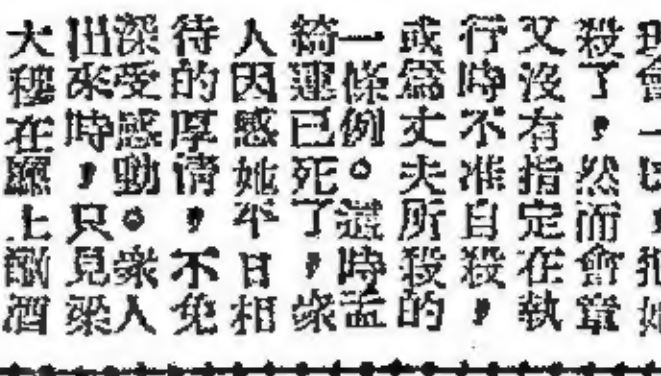 會一
殺了，然而會章
又沒有指定在執
行時不准自殺，
或爲丈夫所殺的
一條例。這時孟
綺蓮已死了，衆
人因感她平日相
待的厚情，不免
深受感動。衆人
出來時，只見梁
大在廳上酒